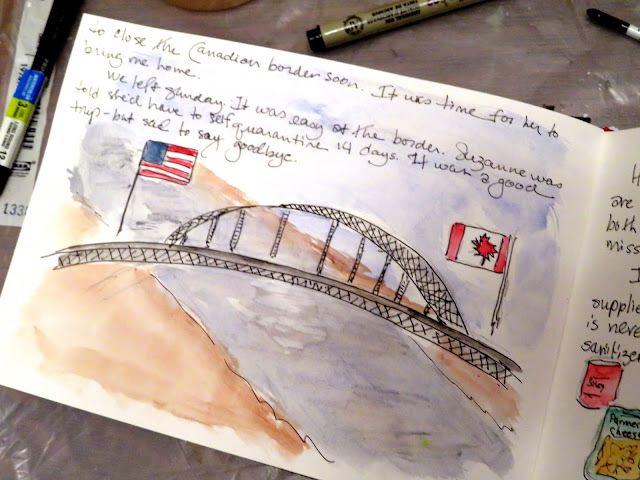 to close the Canadian border soon. It was time for her to
bring me home.
We left Sunday. It was easy at the border. Suzanne was
told she'd have to self quarantine 14 days. It was a good
trip - but sad to say goodbye.
H
are
both
miss
I
supplie
is neve
sanitizer
Parmes
Cheese
133